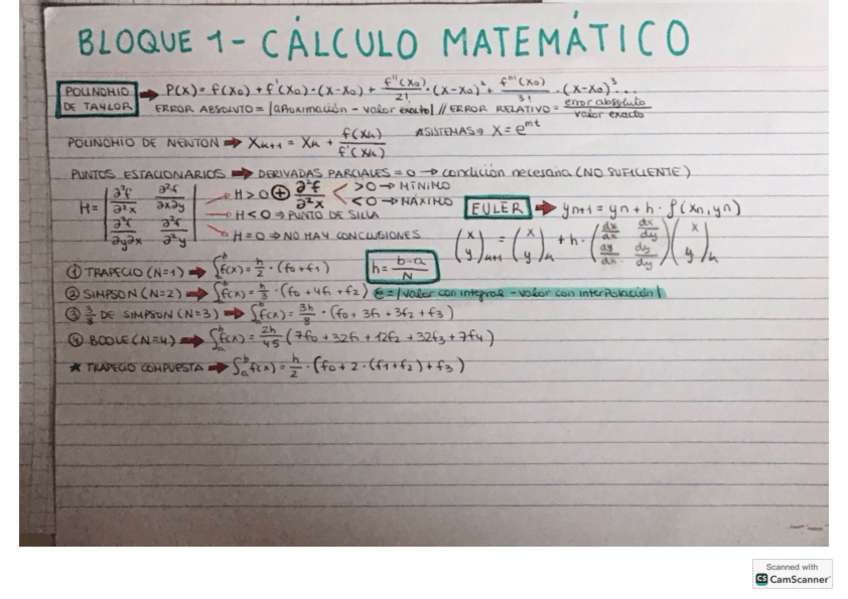 BLOQUE 1 - CÁLCULO MATEMÁTICO
POLINOMIO DE TAYLOR → P(x) = f(x₀) + f'(x₀)·(x-x₀) + f''(x₀)/2! ·(x-x₀)² + f'''(x₀)/3! ·(x-x₀)³...
ERROR ABSOLUTO = |aproximación - valor exacto| // ERROR RELATIVO = error absoluto / valor exacto
POLINOMIO DE NEWTON → Xn+1 = Xn + f(Xn)/f'(Xn) *SISTEMAS → X = e^mt
PUNTOS ESTACIONARIOS → DERIVADAS PARCIALES = 0 → condición necesaria (NO SUFICIENTE)
H = | ∂²f/∂²x ∂²f/∂x∂y |
| ∂²f/∂y∂x ∂²f/∂²y |
→ H > 0 ⊕ ∂²f/∂²x < >0 → MÍNIMO
<0 → MÁXIMO
→ H < 0 → PUNTO DE SILLA
→ H = 0 → NO HAY CONCLUSIONES
EULER → yn+1 = yn + h · f(xn, yn)
(x y)n+1 = (x y)n + h · (dx/dx dx/dy dy/dx dy/dy) (x y)n
① TRAPECIO (N=1) → ∫ₐᵇ f(x) = h/2 · (f0 + f1)
h = b-a / N
② SIMPSON (N=2) → ∫ₐᵇ f(x) = h/3 · (f0 + 4f1 + f2) e = |valor con integral - valor con interpolación|
③ 3/8 DE SIMPSON (N=3) → ∫ₐᵇ f(x) = 3h/8 · (f0 + 3f1 + 3f2 + f3)
④ BOOLE (N=4) → ∫ₐᵇ f(x) = 2h/45 (7f0 + 32f1 + 12f2 + 32f3 + 7f4)
★ TRAPECIO COMPUESTA → ∫ₐᵇ f(x) = h/2 · (f0 + 2·(f1 + f2) + f3)
Scanned with
CS CamScanner